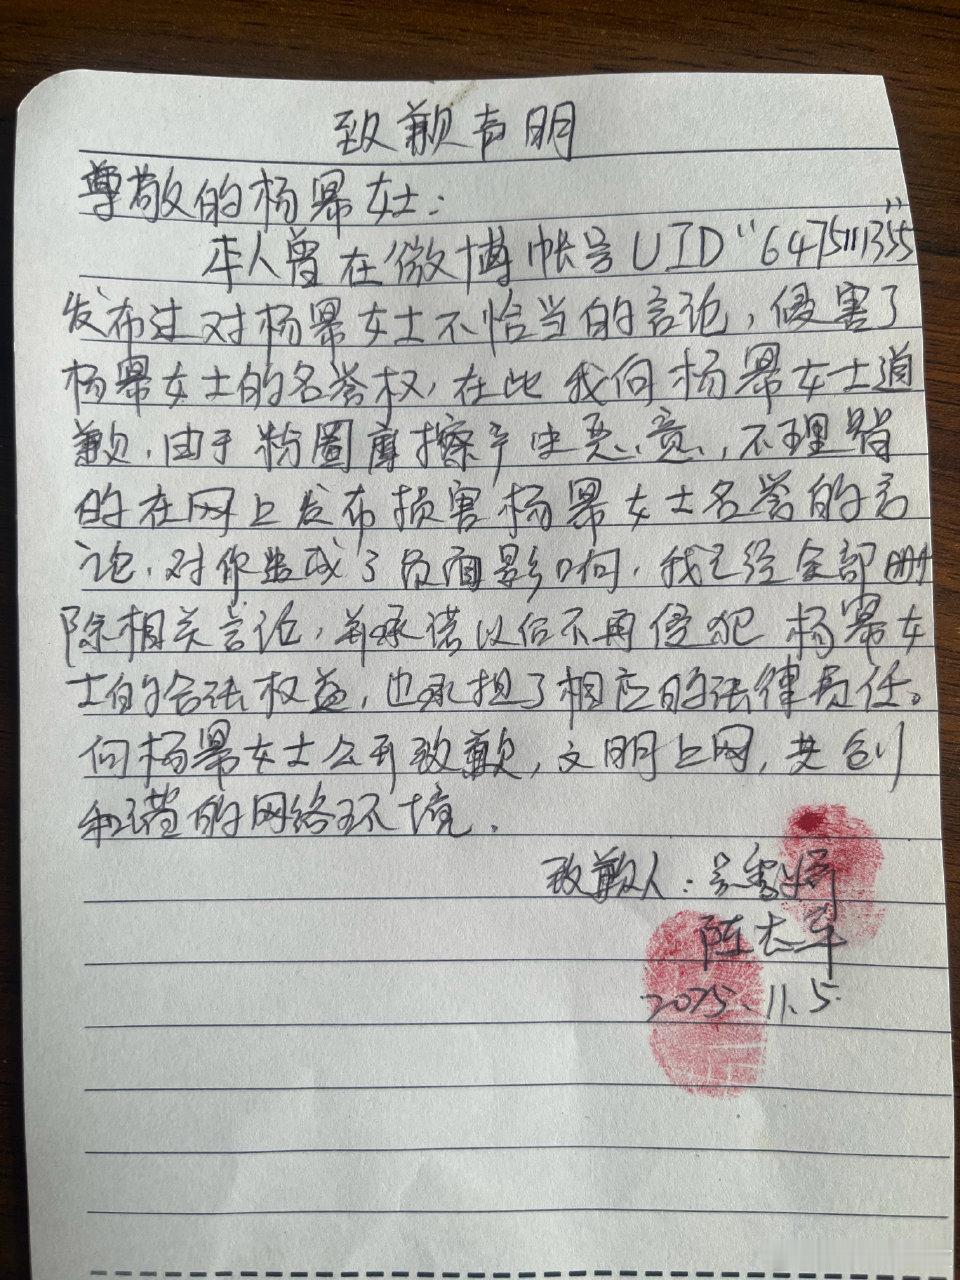 致歉声明
尊敬的杨幂女士：
本人曾在微博帐号UID“6475111355”
发布过对杨幂女士不恰当的言论，侵害了
杨幂女士的名誉权，在此我向杨幂女士道
歉，由于粉圈摩擦产生恶意，不理智
的在网上发布损害杨幂女士名誉的言
论，对你造成了负面影响，我已经全部删
除相关言论，并承诺以后不再侵犯杨幂女
士的合法权益，也承担了相应的法律责任。
向杨幂女士公开致歉，文明上网，共创
和谐的网络环境.
致歉人：吴雪
陈志军
2025.11.5